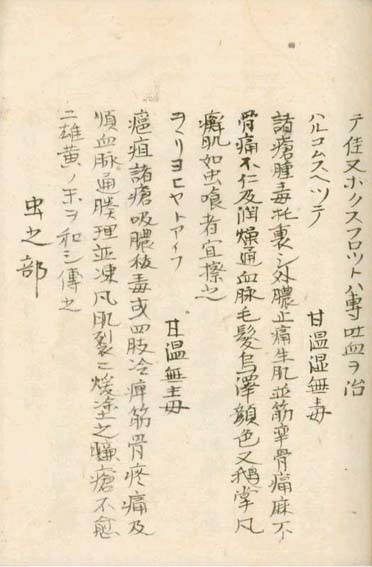 テ佳又ボクスフロットハ專吐血ヲ治
ハルコムスペツテ　甘温湿無毒
諸瘡腫毒托裏シ外膿止痛生肌並筋攣骨痛麻木
骨痛不仁及潤燥通血脉毛髪烏澤顔色又鵝掌凡
癬肌如虫喰者宜擦之
ヲヽリヨヒヤトアイフ　甘温無毒
瘡疽諸瘡吸膿抜毒或四肢冷痺筋骨疼痛及
順血脉通腠理並凍凡肌裂ニ煖塗之臁瘡不愈
ニ雄黄ノ末ヲ和シ傳之
虫之部